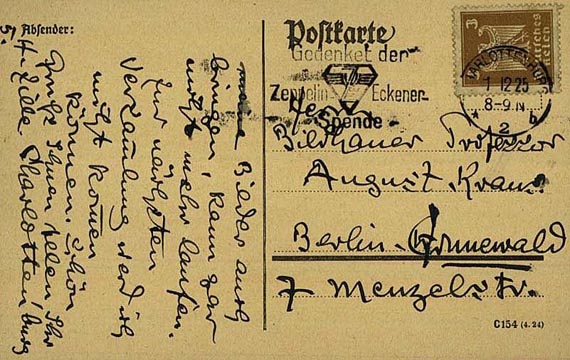 Absender:
meine Bilder auch
bringen, kann gar
nicht mehr laufen.
Zur nächsten
Versamlung werd ich
nicht kommen
können. Schön
Gruß Ihnen allen Ihr
H. Zille Charlottenburg
Postkarte
Gedenket der
Zeppelin- Eckener-
Spende
3
Deutsches
Reich
CHARLOTTENBURG
1 12 25
8-9 N
* 2 b
Herrn
Bildhauer Professor
August Kraus
Berlin-Grunewald
7 Menzelstr.
C154 (4. 24)